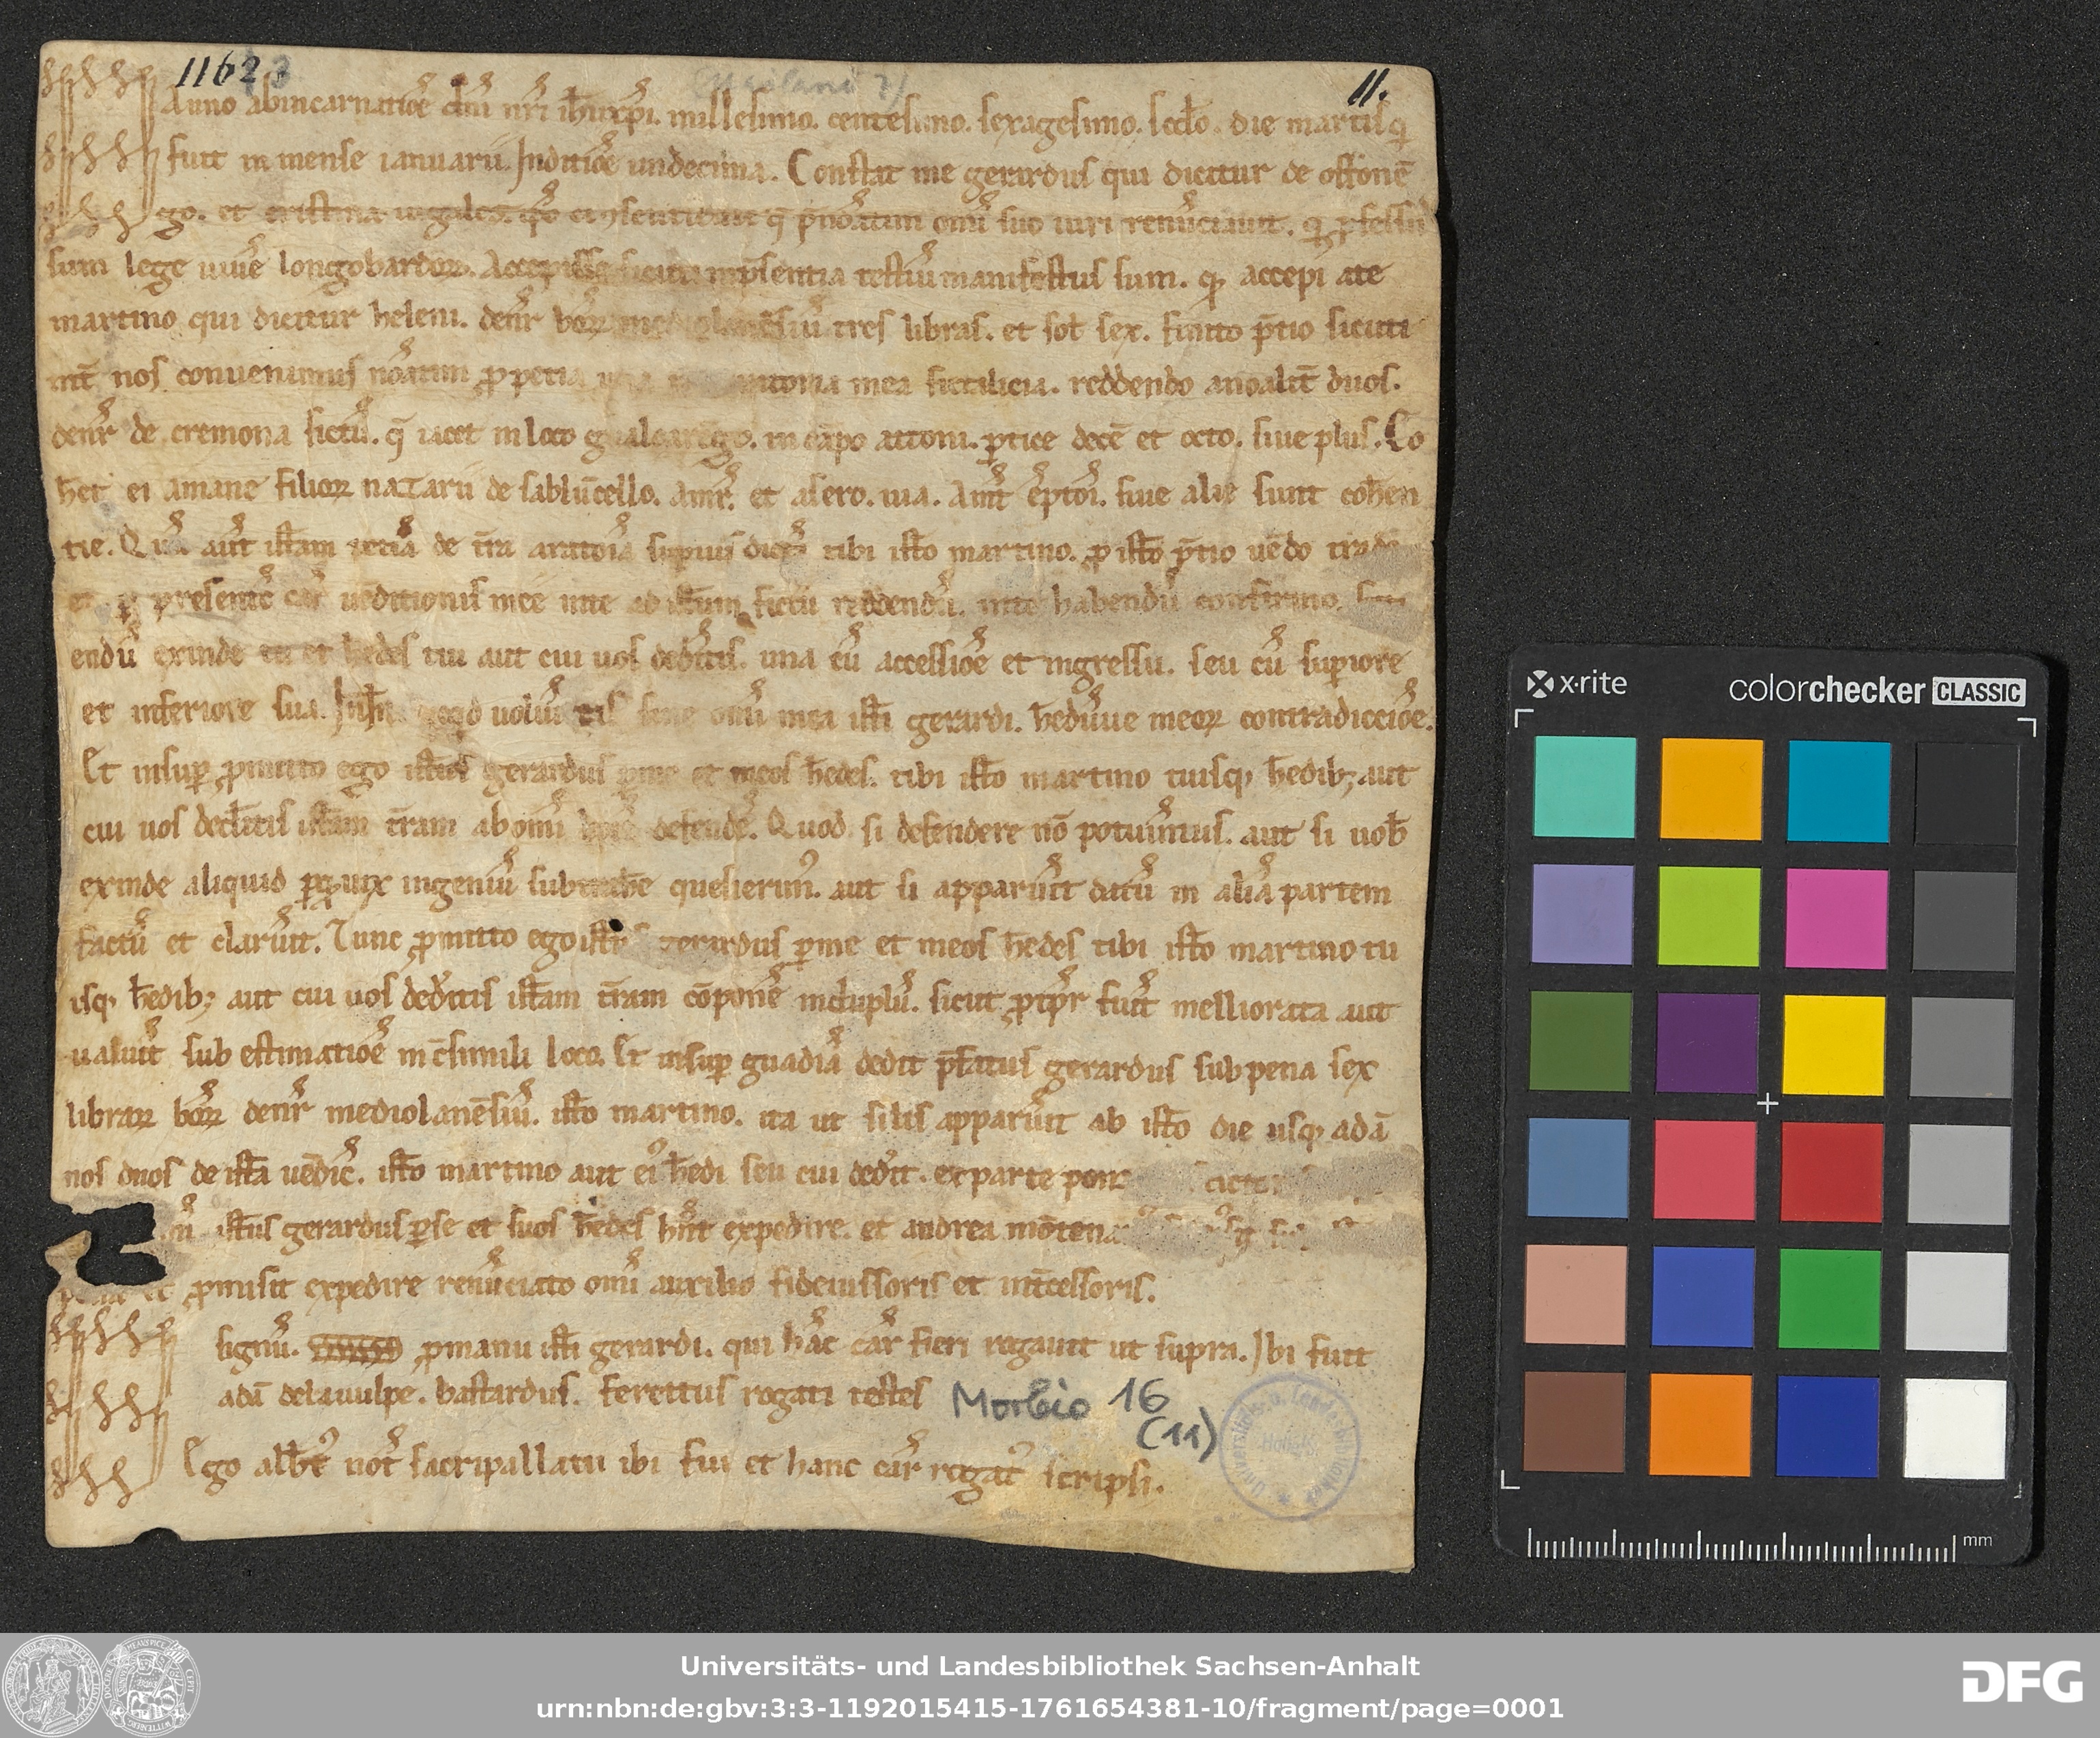 1162 3
11.
Anno abincarnatiōe dn̄i nr̄i ih̄uxp̄i. millesimo. centesimo. sexagesimo. scd̄o. die martis q̄
fuit in mense ianuarii. Inditiōe undecima. Constat me gerardus qui dicitur de offonē
go. et cristina iugales. consentiente q̄ p̄noāt̄im om̄i suo iuri renūciauit. q̨ ꝓfessu᷒
sum lege uiuē longobardoꝝ. Accepisse sicuti inp̄sentia testiū manifestus sum. qꝫ accepi ate
martino qui dicitur heleni. denr̄ boꝝ mediolanēsiū tres libras. et sol̄ sex. finito p̄tio sicuti
int̄ nos conuenimus nōatim ꝓpetia una aratoria mea fictilicia. reddendo anoalit̄ duos.
denr̄ de cremona fictū. q̄ iacet in loco in cāpo attoni. ꝑtice decē et octo. siue plus. Co
h̄et ei amane filioꝝ nazarii de sablūcello. Amr̄. et asero. uia. Amt̄ ēptor̄. siue alie sunt coh̄en
tie. Quā aūt istam petiā de tr̄a aratoīa supius dictā tibi isto martino. ꝓ isto p̄tio uēdo
et presentē car̄ uēditionis meē inte ad istum fictū reddendū. inte habendū confirmo.
endū exinde tu et h̄edes tui aut cui uos dedr̄itis. una cū accessiōe et ingressu. seu cū supiore
et inferiore sua. quod uoluītis sine om̄i mea isti gerardi. h̄edūue meoꝝ contradicciōe.
Et insup ꝓmitto ego istus gerardus ꝑme et meos h̄edes. tibi isto martino tuisqꝫ h̄edibꝫ aut
cui uos dedr̄itis istam tr̄am abomī defendē. Quod si defendere nō potuīmus. aut si uob̄
exinde aliquid ingeniū subtrahē quesierim᷒. aut si apparūit datū in aliā partem
factū et clarūit. Tunc ꝓmitto ego istus gerardus ꝑme et meos h̄edes tibi isto martino tu
isqꝫ h̄edibꝫ aut cui uos dedr̄itis istam tr̄am cōponē induplū. sicut ꝓtp̄r fuit̄ melliorata aut
ualuit̄ sub estimatiōe in c̄simili loco. Et insup guadiā dedit p̄fatus gerardus subpena sex
libraꝝ boꝝ denr̄ mediolanēsiū. isto martino. ita ut silis apparūit ab isto die usqꝫ adā
nos duos de istā uēdic̄. isto martino aut ei᷒ h̄edi seu cui dedr̄it. exparte
istus gerardus ꝑse et suos h̄edes hn̄t expedire. et andrea
ꝓmisit expedire renūciato om̄i auxilio fideiussoris et int̄cessoris.
signū. ꝑmanu isti gerardi. qui hāc car̄ fieri rogauit ut supra. Ibi fuit
adā delauulpe. bastardus. ferettus rogati testes
Morbio 16
(11)
Ego alb̄t᷒ not̄ sacripallatii ibi fui et hanc car̄ rogat᷒ scripsi.
x·rite
colorchecker CLASSIC
mm
Universitäts- und Landesbibliothek Sachsen-Anhalt
urn:nbn:de:gbv:3:3-1192015415-1761654381-10/fragment/page=0001
DFG